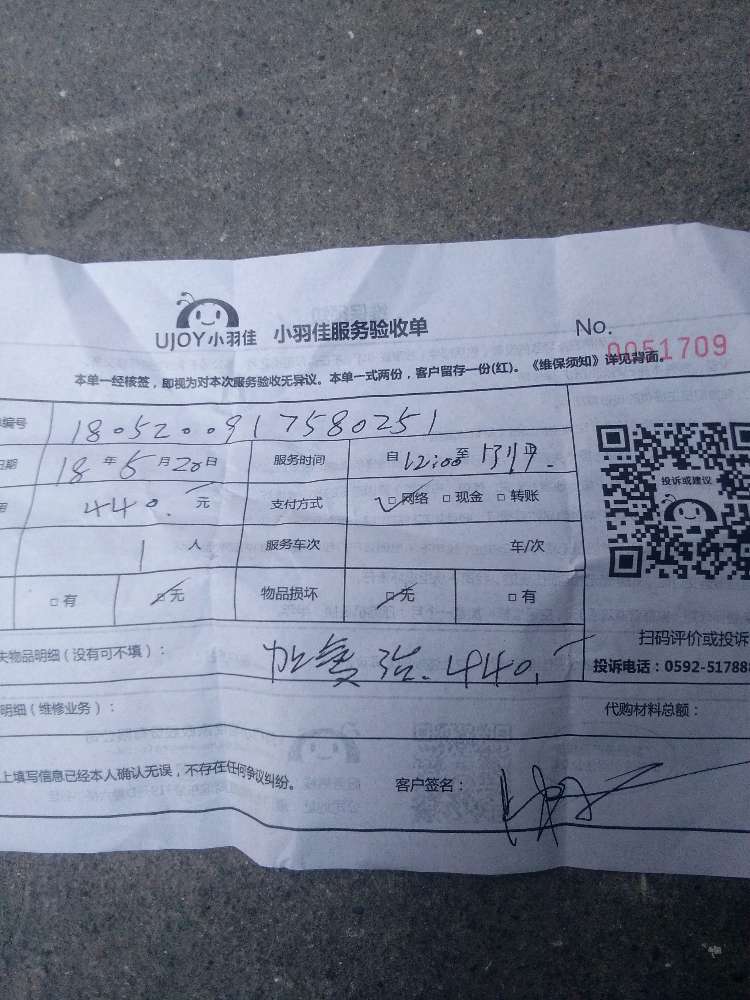 UJOY小羽佳 小羽佳服务验收单 No. 0051709
本单一经核签，即视为对本次服务验收无异议。本单一式两份，客户留存一份(红)。《维保须知》详见背面。
编号 1805200917580251
日期 18年5月20日 服务时间 自12:00至
440.元 支付方式 ☑网络 □现金 □转账
1人 服务车次 车/次
□有 ☑无 物品损坏 ☑无 □有
投诉或建议
扫码评价或投诉
失物品明细（没有可不填）： 440.
投诉电话：0592-51788
明细（维修业务）： 代购材料总额：
上填写信息已经本人确认无误，不存在任何争议纠纷。 客户签名：